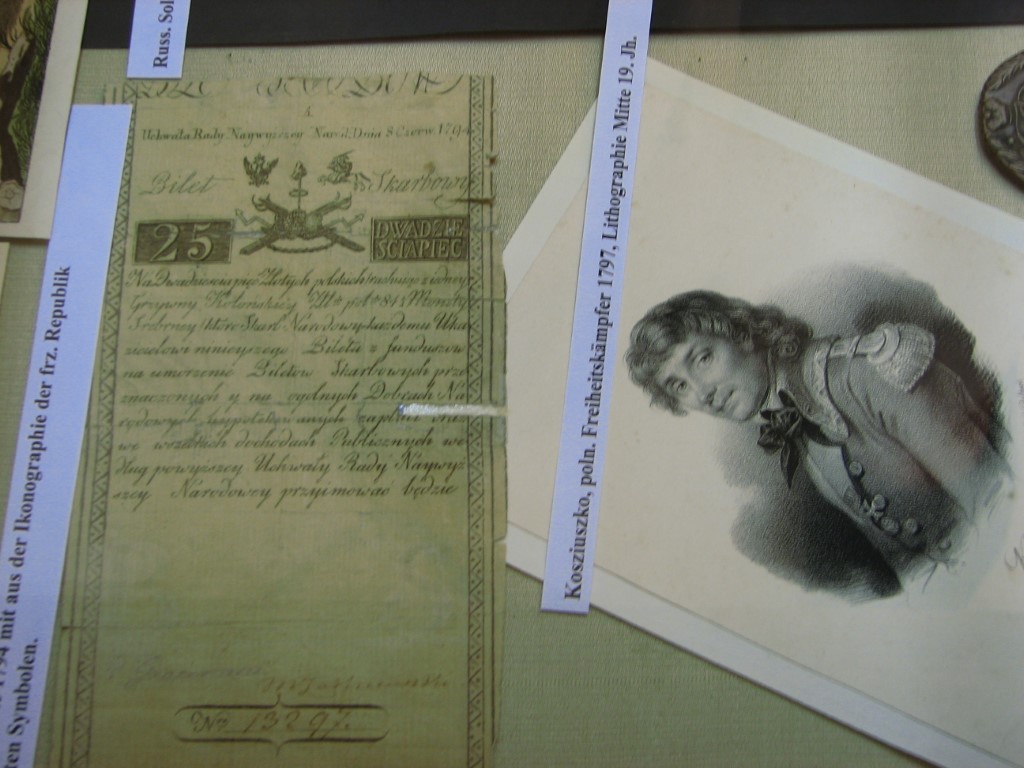 Russ. Sol
1794 mit aus der Ikonographie der frz. Republik
ten Symbolen.
A
Uchwała Rady Naywyzszey Narod: Dnia 8 Czerw. 1794
Bilet Skarbowy
25 DWADZIE
ŚCIAPIEC
Na Dwadzieścia pięć Złotych polskich rachując z iedney
Grzywny Kolońskiey Monety
Srebrney ktore Skarb Narodowy każdemu Uka
zicielowi ninieyszego Biletu z funduszow
na umorzenie Biletow Skarbowych prze
znaczonych y na ogolnych Dobrach Na
rodowych zapłaci
we wszelkich dochodach Publicznych we
dług powyższey Uchwały Rady Naywyż
szey Narodowey przyimować będzie
No 13297.
Kosziuszko, poln. Freiheitskämpfer 1797, Lithographie Mitte 19. Jh.